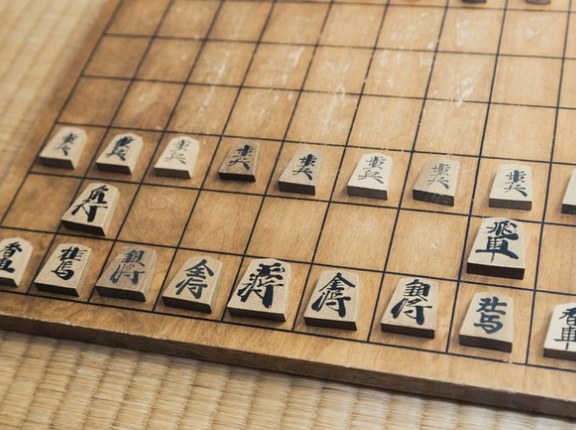 歩兵 歩兵 歩兵 歩兵 歩兵 歩兵 歩兵 歩兵
角行 飛車
香車 桂馬 銀将 金将 将 金将 銀将 桂馬 香車